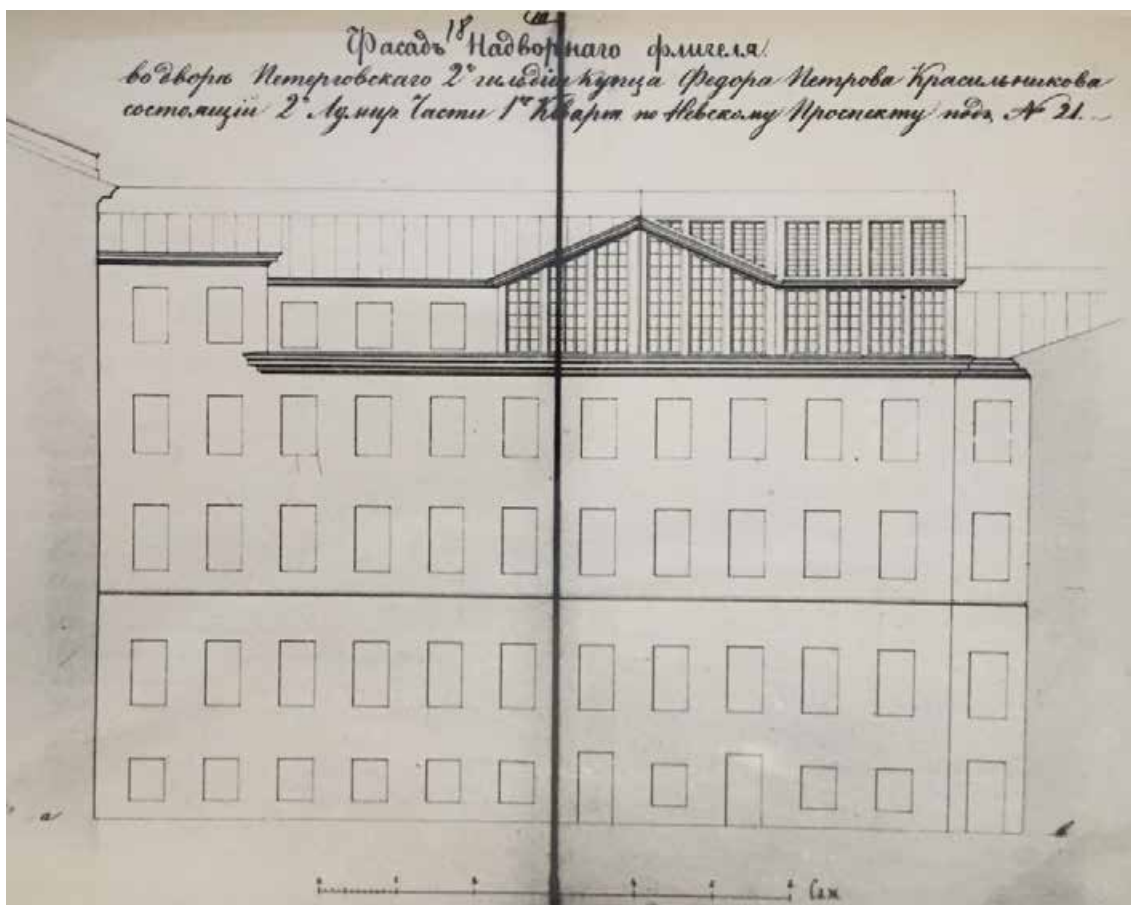 18
Фасадъ Надворнаго флигеля.
во дворѣ Петерговскаго 2й гильдіи купца Федора Петрова Красильникова
состоящій 2й Адмир Части 1го Кварт. по Невскому Проспекту подъ № 21.
а в
Саж.